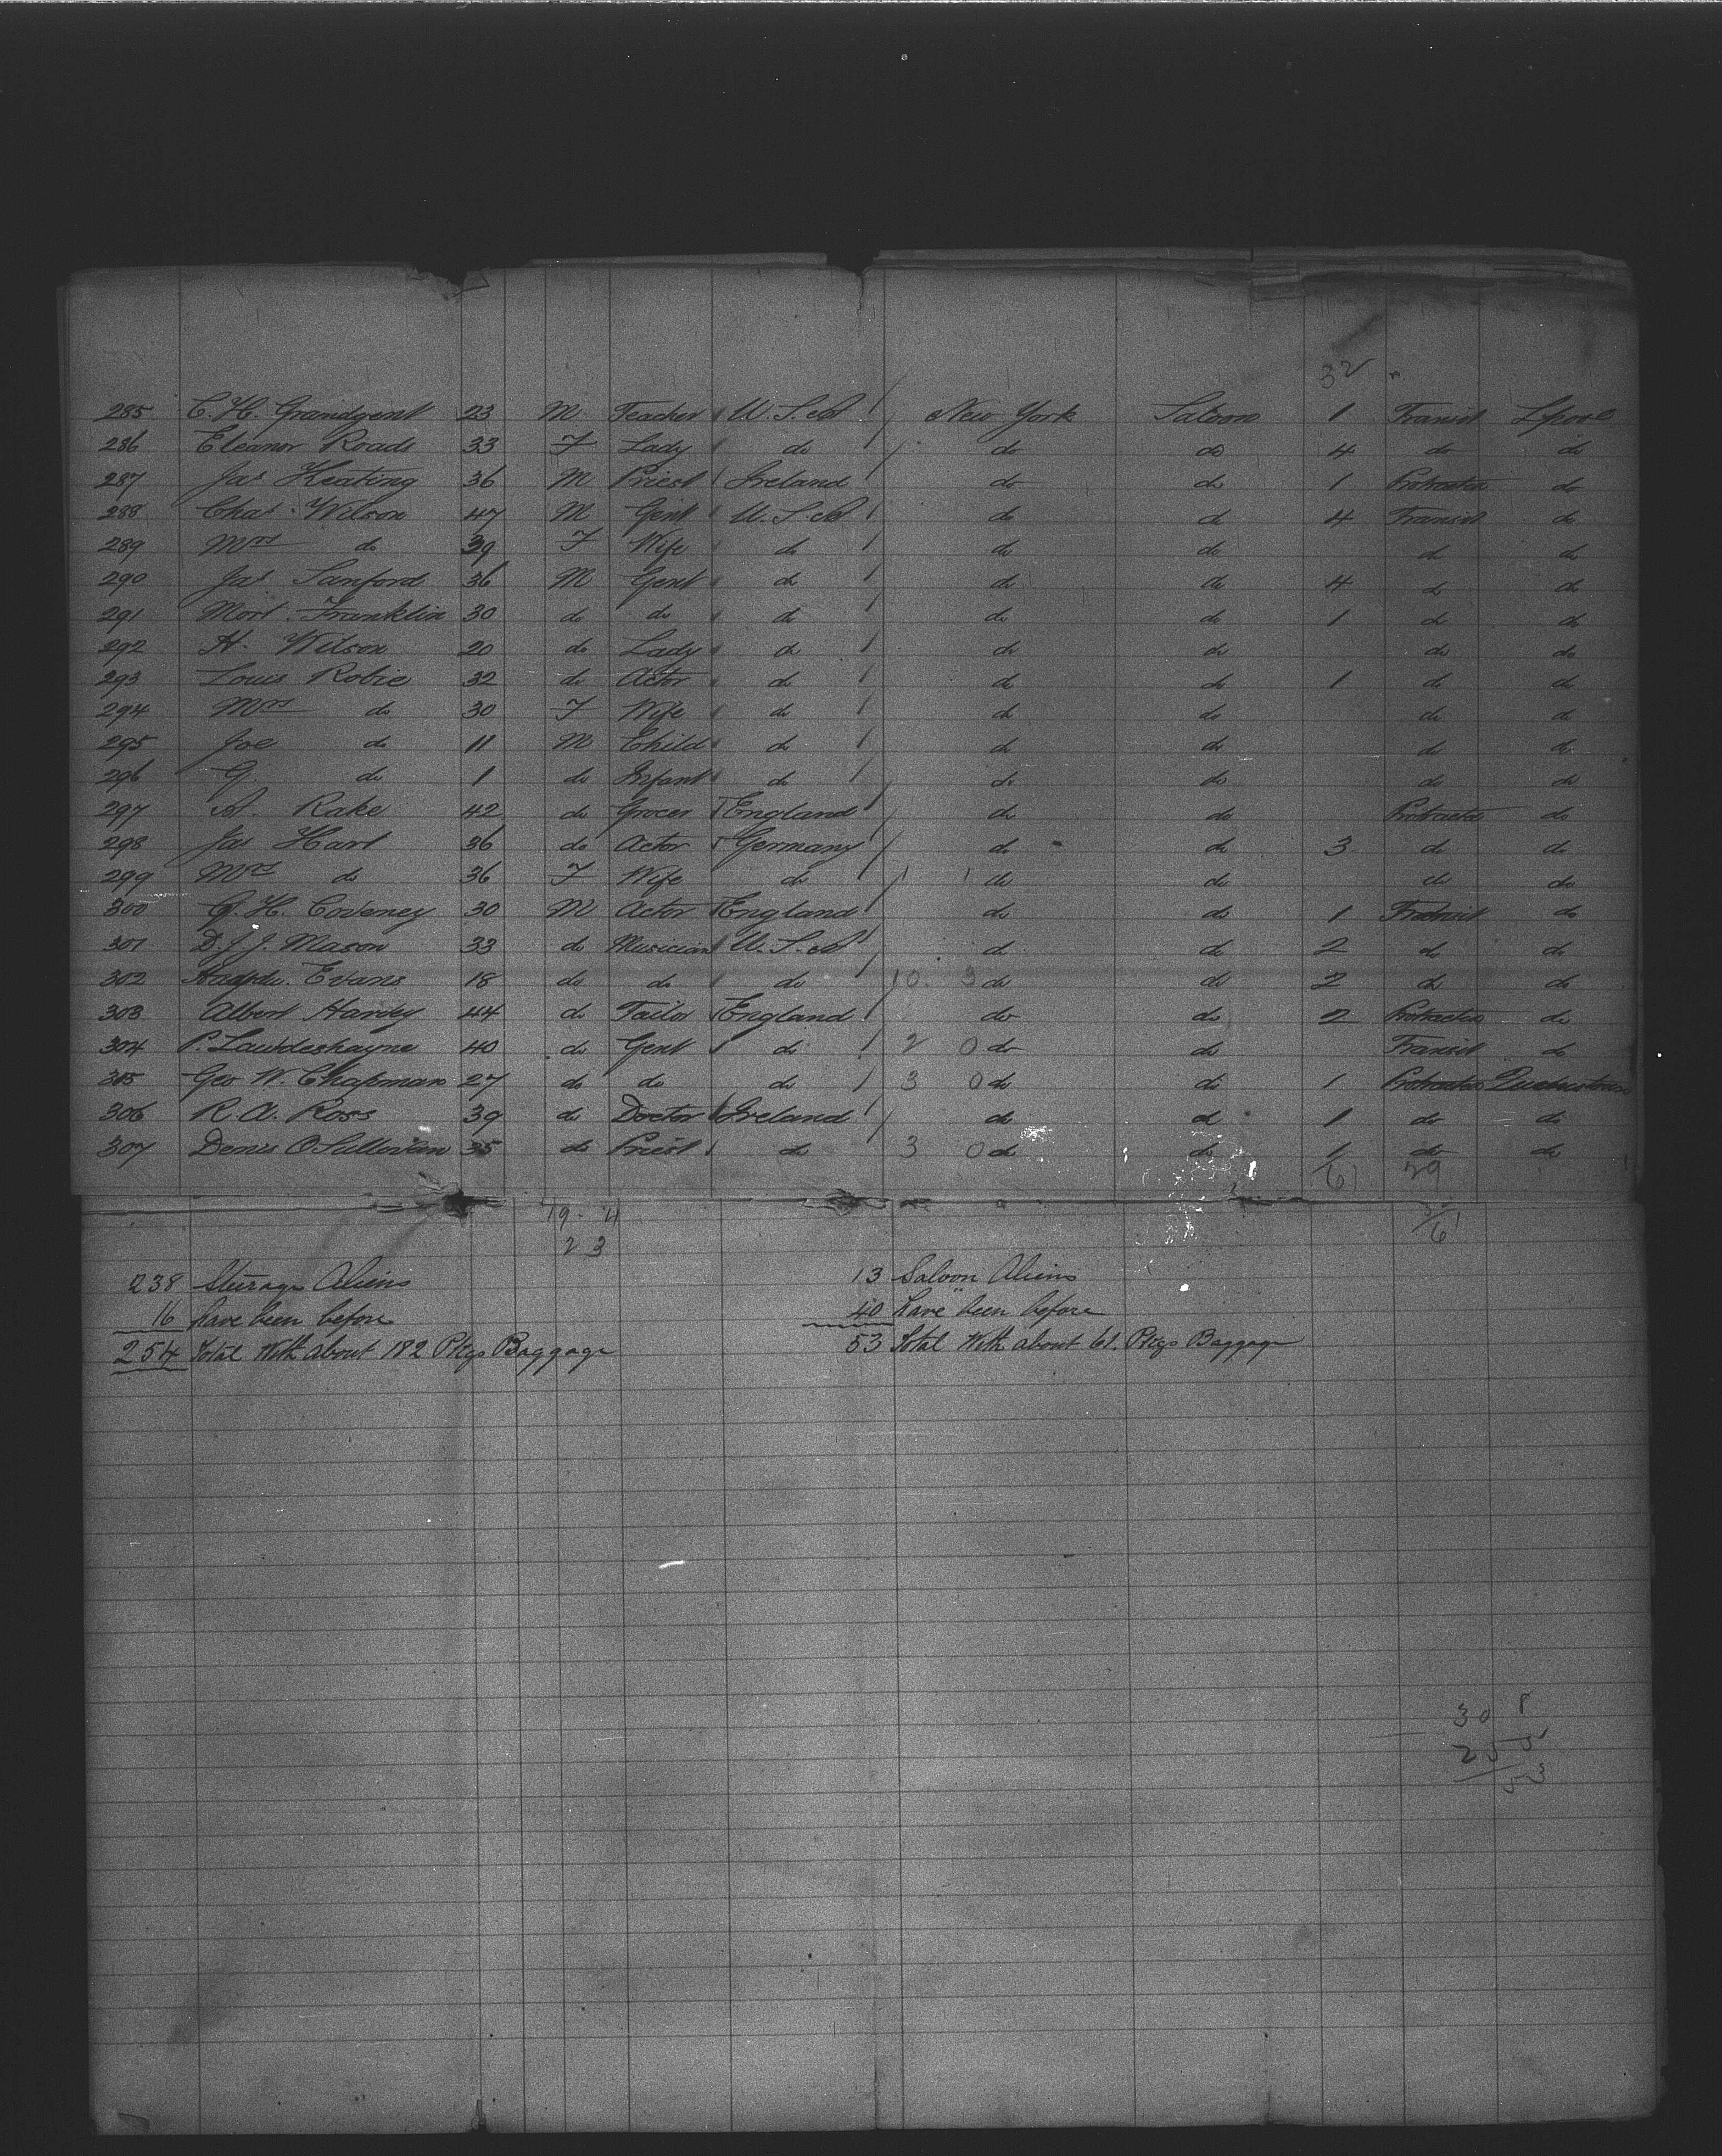 32
285 C. H. Grandgent 23 M Teacher U. S. A New York Saloon 1 Transit Lpool
286 Eleanor Roads 33 F Lady do do do 4 do do
287 Jas Keating 36 M Priest Ireland do do 1 Protracted do
288 Chas. Wilson 47 M Gent U. S. A do do 4 Transit do
289 Mrs do 39 F Wife do do do do do
290 Jas Sanford 36 M Gent do do do 4 do do
291 Mort. Franklin 30 do do do do do 1 do do
292 H. Wilson 20 do Lady do do do do do
293 Louis Robie 32 do Actor do do do 1 do do
294 Mrs do 30 F Wife do do do do do
295 Joe do 11 M Child do do do do do
296 G. do 1 do Infant do do do do do
297 A. Rake 42 do Grocer England do do Protracted do
298 Jas Hart 36 do Actor Germany do do 3 do do
299 Mrs do 36 F Wife do do do do do
300 G. H. Coveney 30 M Actor England do do 1 Transit do
301 D. J. J. Mason 33 do Musician U. S. A do do 2 do do
302 Evans 18 do do do 10. 3 do do 2 do do
303 Albert Hardy 44 do Tailor England do do 2 Protracted do
304 P. Lawdeshayne 40 do Gent do 2 0 do do Transit do
305 Geo W. Chapman 27 do do do 3 0 do do 1 Protracted Queenstown
306 R. A. Ross 39 do Doctor Ireland do do 1 do do
307 Denis O'Sullivan 35 do Priest do 3 0 do do 1 do do
61 29
19 - 4
23
238 Steerage Aliens
16 have been before
254 Total With about 182 Pkgs Baggage
13 Saloon Aliens
40 have been before
53 Total With about 61. Pkgs Baggage
308
255
53